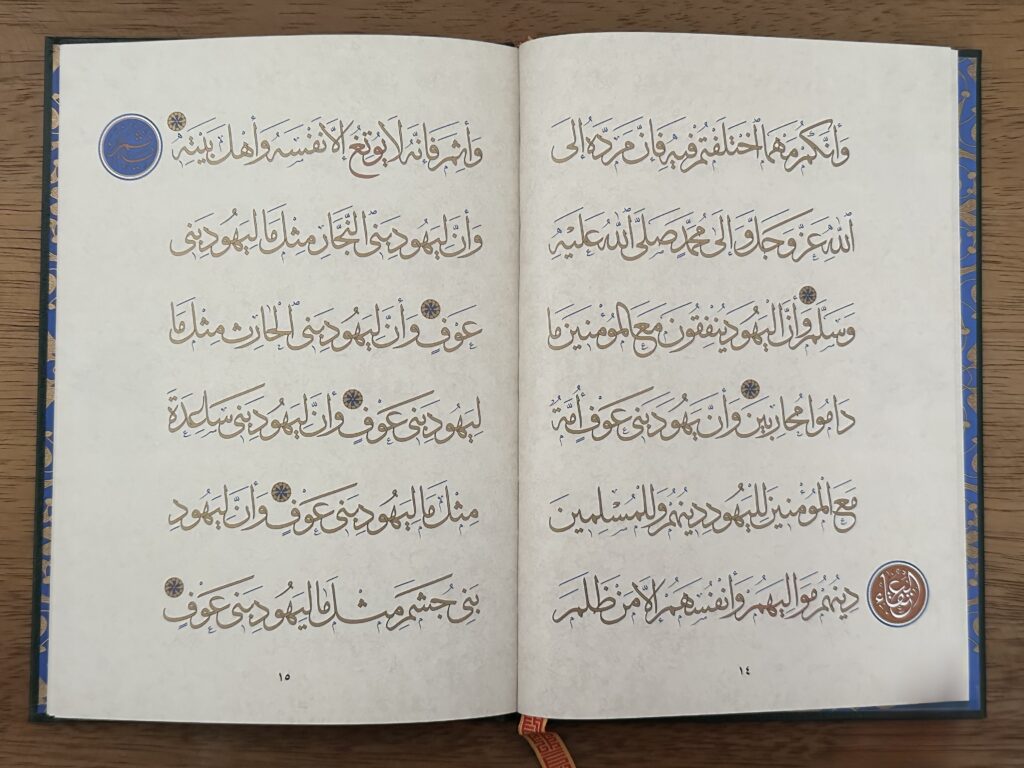 وَأَنَّكُمْ مَهْمَا اخْتَلَفْتُمْ فِيهِ فَإِنَّ مَرَدَّهُ إِلَى
اللهِ عَزَّ وَجَلَّ وَإِلَى مُحَمَّدٍ صَلَّى اللهُ عَلَيْهِ
وَسَلَّمَ وَأَنَّ الْيَهُودَ يُنْفِقُونَ مَعَ الْمُؤْمِنِينَ مَا
دَامُوا مُحَارَبِينَ وَأَنَّ يَهُودَ بَنِي عَوْفٍ أُمَّةٌ
مَعَ الْمُؤْمِنِينَ لِلْيَهُودِ دِينُهُمْ وَلِلْمُسْلِمِينَ
دِينُهُمْ مَوَالِيهِمْ وَأَنْفُسُهُمْ إِلَّا مَنْ ظَلَمَ
١٤
وَأَثِمَ فَإِنَّهُ لَا يُوتِغُ إِلَّا نَفْسَهُ وَأَهْلَ بَيْتِهِ
وَأَنَّ لِيَهُودِ بَنِي النَّجَّارِ مِثْلَ مَا لِيَهُودِ بَنِي
عَوْفٍ وَأَنَّ لِيَهُودِ بَنِي الْحَارِثِ مِثْلَ مَا
لِيَهُودِ بَنِي عَوْفٍ وَأَنَّ لِيَهُودِ بَنِي سَاعِدَةَ
مِثْلَ مَا لِيَهُودِ بَنِي عَوْفٍ وَأَنَّ لِيَهُودِ
بَنِي جُشَمَ مِثْلَ مَا لِيَهُودِ بَنِي عَوْفٍ
١٥